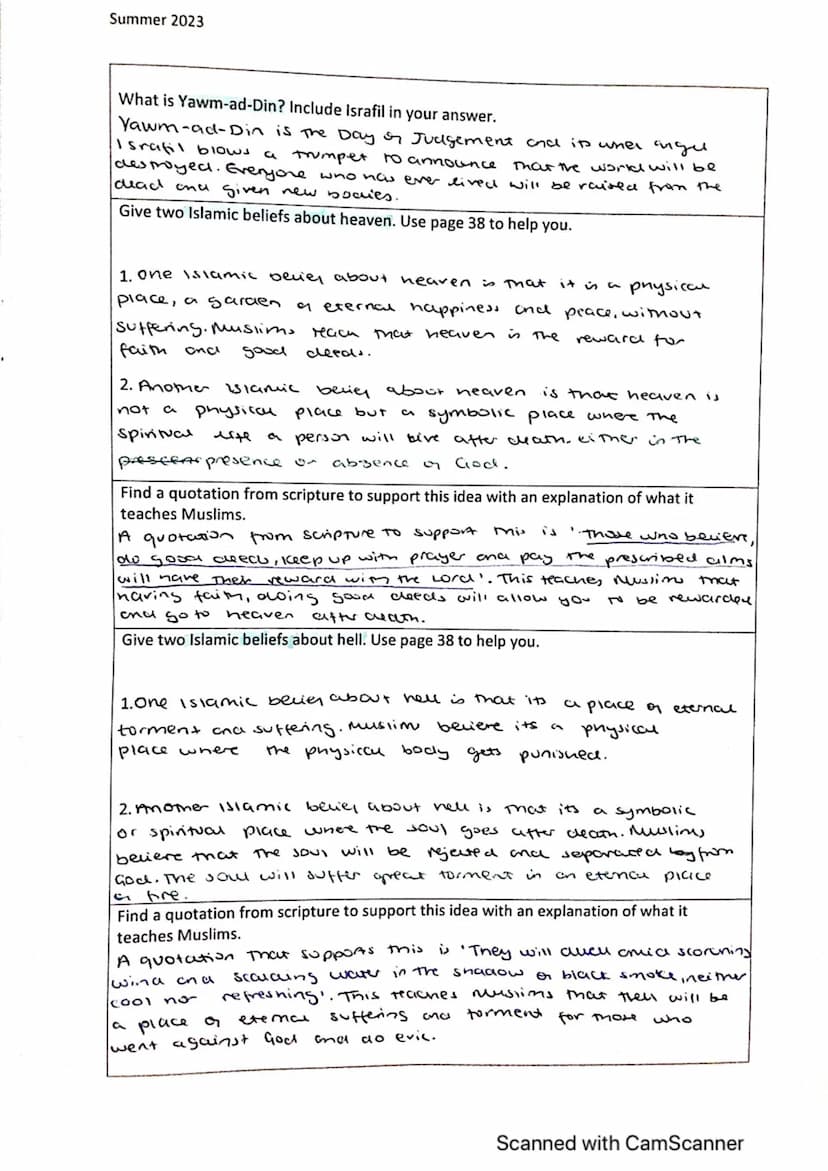 Summer 2023
What is Yawm-ad-Din? Include Israfil in your answer.
Yawm-ad-Din is the Day of Judgement and is when angel
Israfil blows a trumpet to announce that the world will be
destroyed. Everyone who has ever lived will be raised from the
dead and given new bodies.
Give two Islamic beliefs about heaven. Use page 38 to help you.
1. One Islamic belief about heaven is that it is a physical
place, a garden of eternal happiness and peace, without
suffering. Muslims teach that heaven is the reward for
faith and good deeds.
2. Another Islamic belief about heaven is that heaven is
not a physical place but a symbolic place where the
spiritual life a person will live after death. either in the
presence or absence of God.
Find a quotation from scripture to support this idea with an explanation of what it
teaches Muslims.
A quotation from scripture to support this is 'Those who believe,
do good deeds, keep up with prayer and pay the prescribed alms
will have their reward with the Lord'. This teaches Muslims that
having faith, doing good deeds will allow you to be rewarded
and go to heaven after death.
Give two Islamic beliefs about hell. Use page 38 to help you.
1. One Islamic belief about hell is that its a place of eternal
torment and suffering. Muslim believe its a physical
place where the physical body gets punished.
2. Another Islamic belief about hell is that its a symbolic
or spiritual place where the soul goes after death. Muslims
believe that the soul will be rejected and separated from
God. The soul will suffer great torment in an eternal place
of fire.
Find a quotation from scripture to support this idea with an explanation of what it
teaches Muslims.
A quotation that supports this is 'They will dwell amid scorching
wind and scalding water in the shadow of black smoke, neither
cool nor refreshing'. This teaches Muslims that hell will be
a place of eternal suffering and torment for those who
went against God and do evil.
Scanned with CamScanner